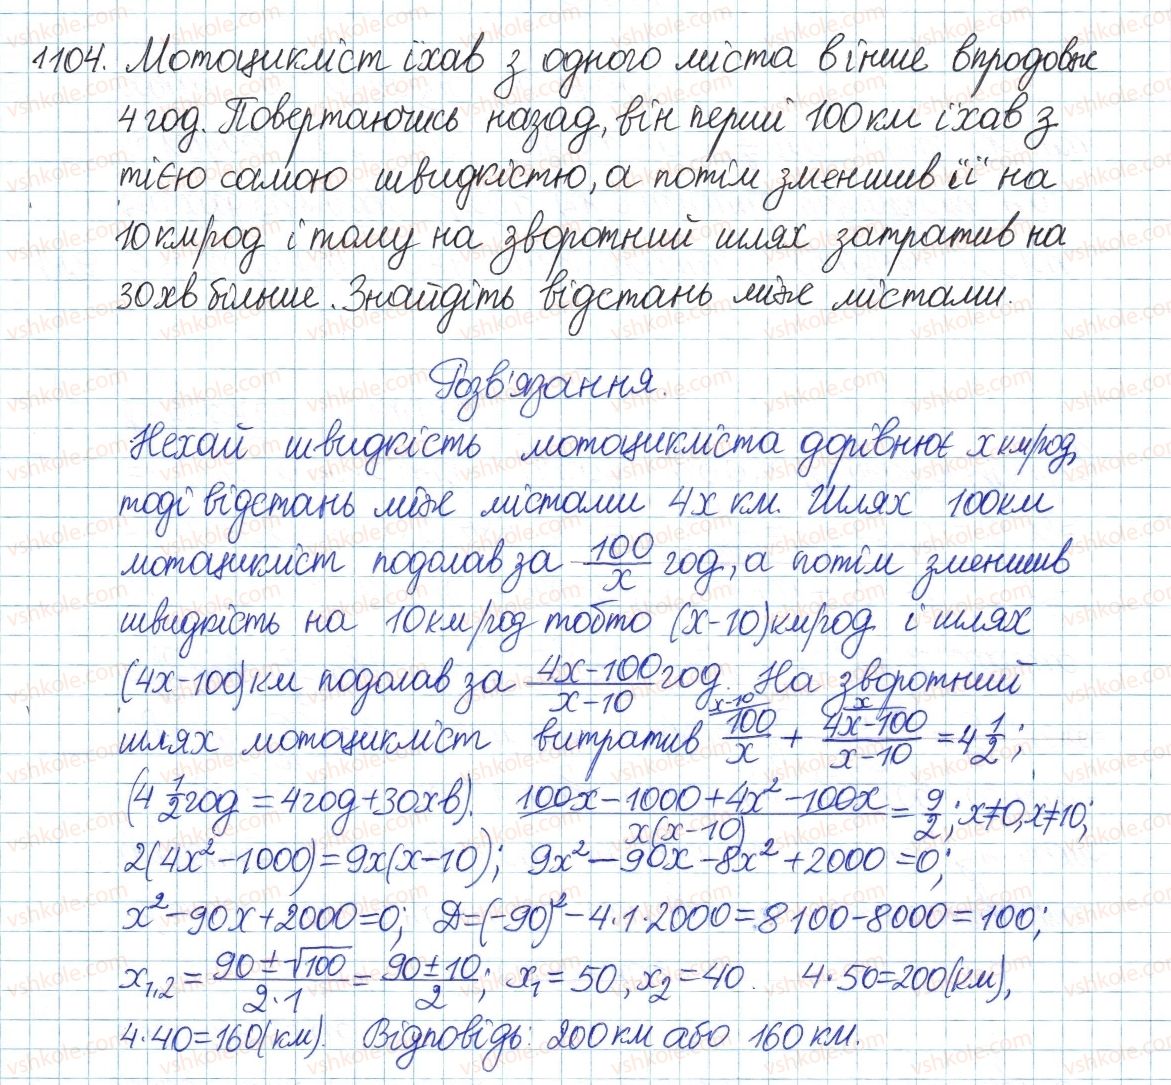 1104. Мотоцикліст їхав з одного міста в інше впродовж
4 год. Повертаючись назад, він перші 100 км їхав з
тією самою швидкістю, а потім зменшив її на
10 км/год і тому на зворотний шлях затратив на
30 хв більше. Знайдіть відстань між містами.
Розв'язання.
Нехай швидкість мотоцикліста дорівнює x км/год,
тоді відстань між містами 4x км. Шлях 100 км
мотоцикліст подолав за 100/x год, а потім зменшив
швидкість на 10 км/год тобто (x-10) км/год і шлях
(4x-100) км подолав за (4x-100)/(x-10) год. На зворотний
шлях мотоцикліст витратив 100/x + (4x-100)/(x-10) = 4 1/2;
(4 1/2 год = 4 год + 30 хв). (100x-1000+4x²-100x)/(x(x-10)) = 9/2; x≠0, x≠10;
2(4x²-1000)=9x(x-10); 9x²-90x-8x²+2000=0;
x²-90x+2000=0; Д=(-90)²-4·1·2000=8100-8000=100;
x₁,₂ = (90±√100)/(2·1) = (90±10)/2; x₁=50, x₂=40. 4·50=200(км),
4·40=160(км). Відповідь: 200 км або 160 км.